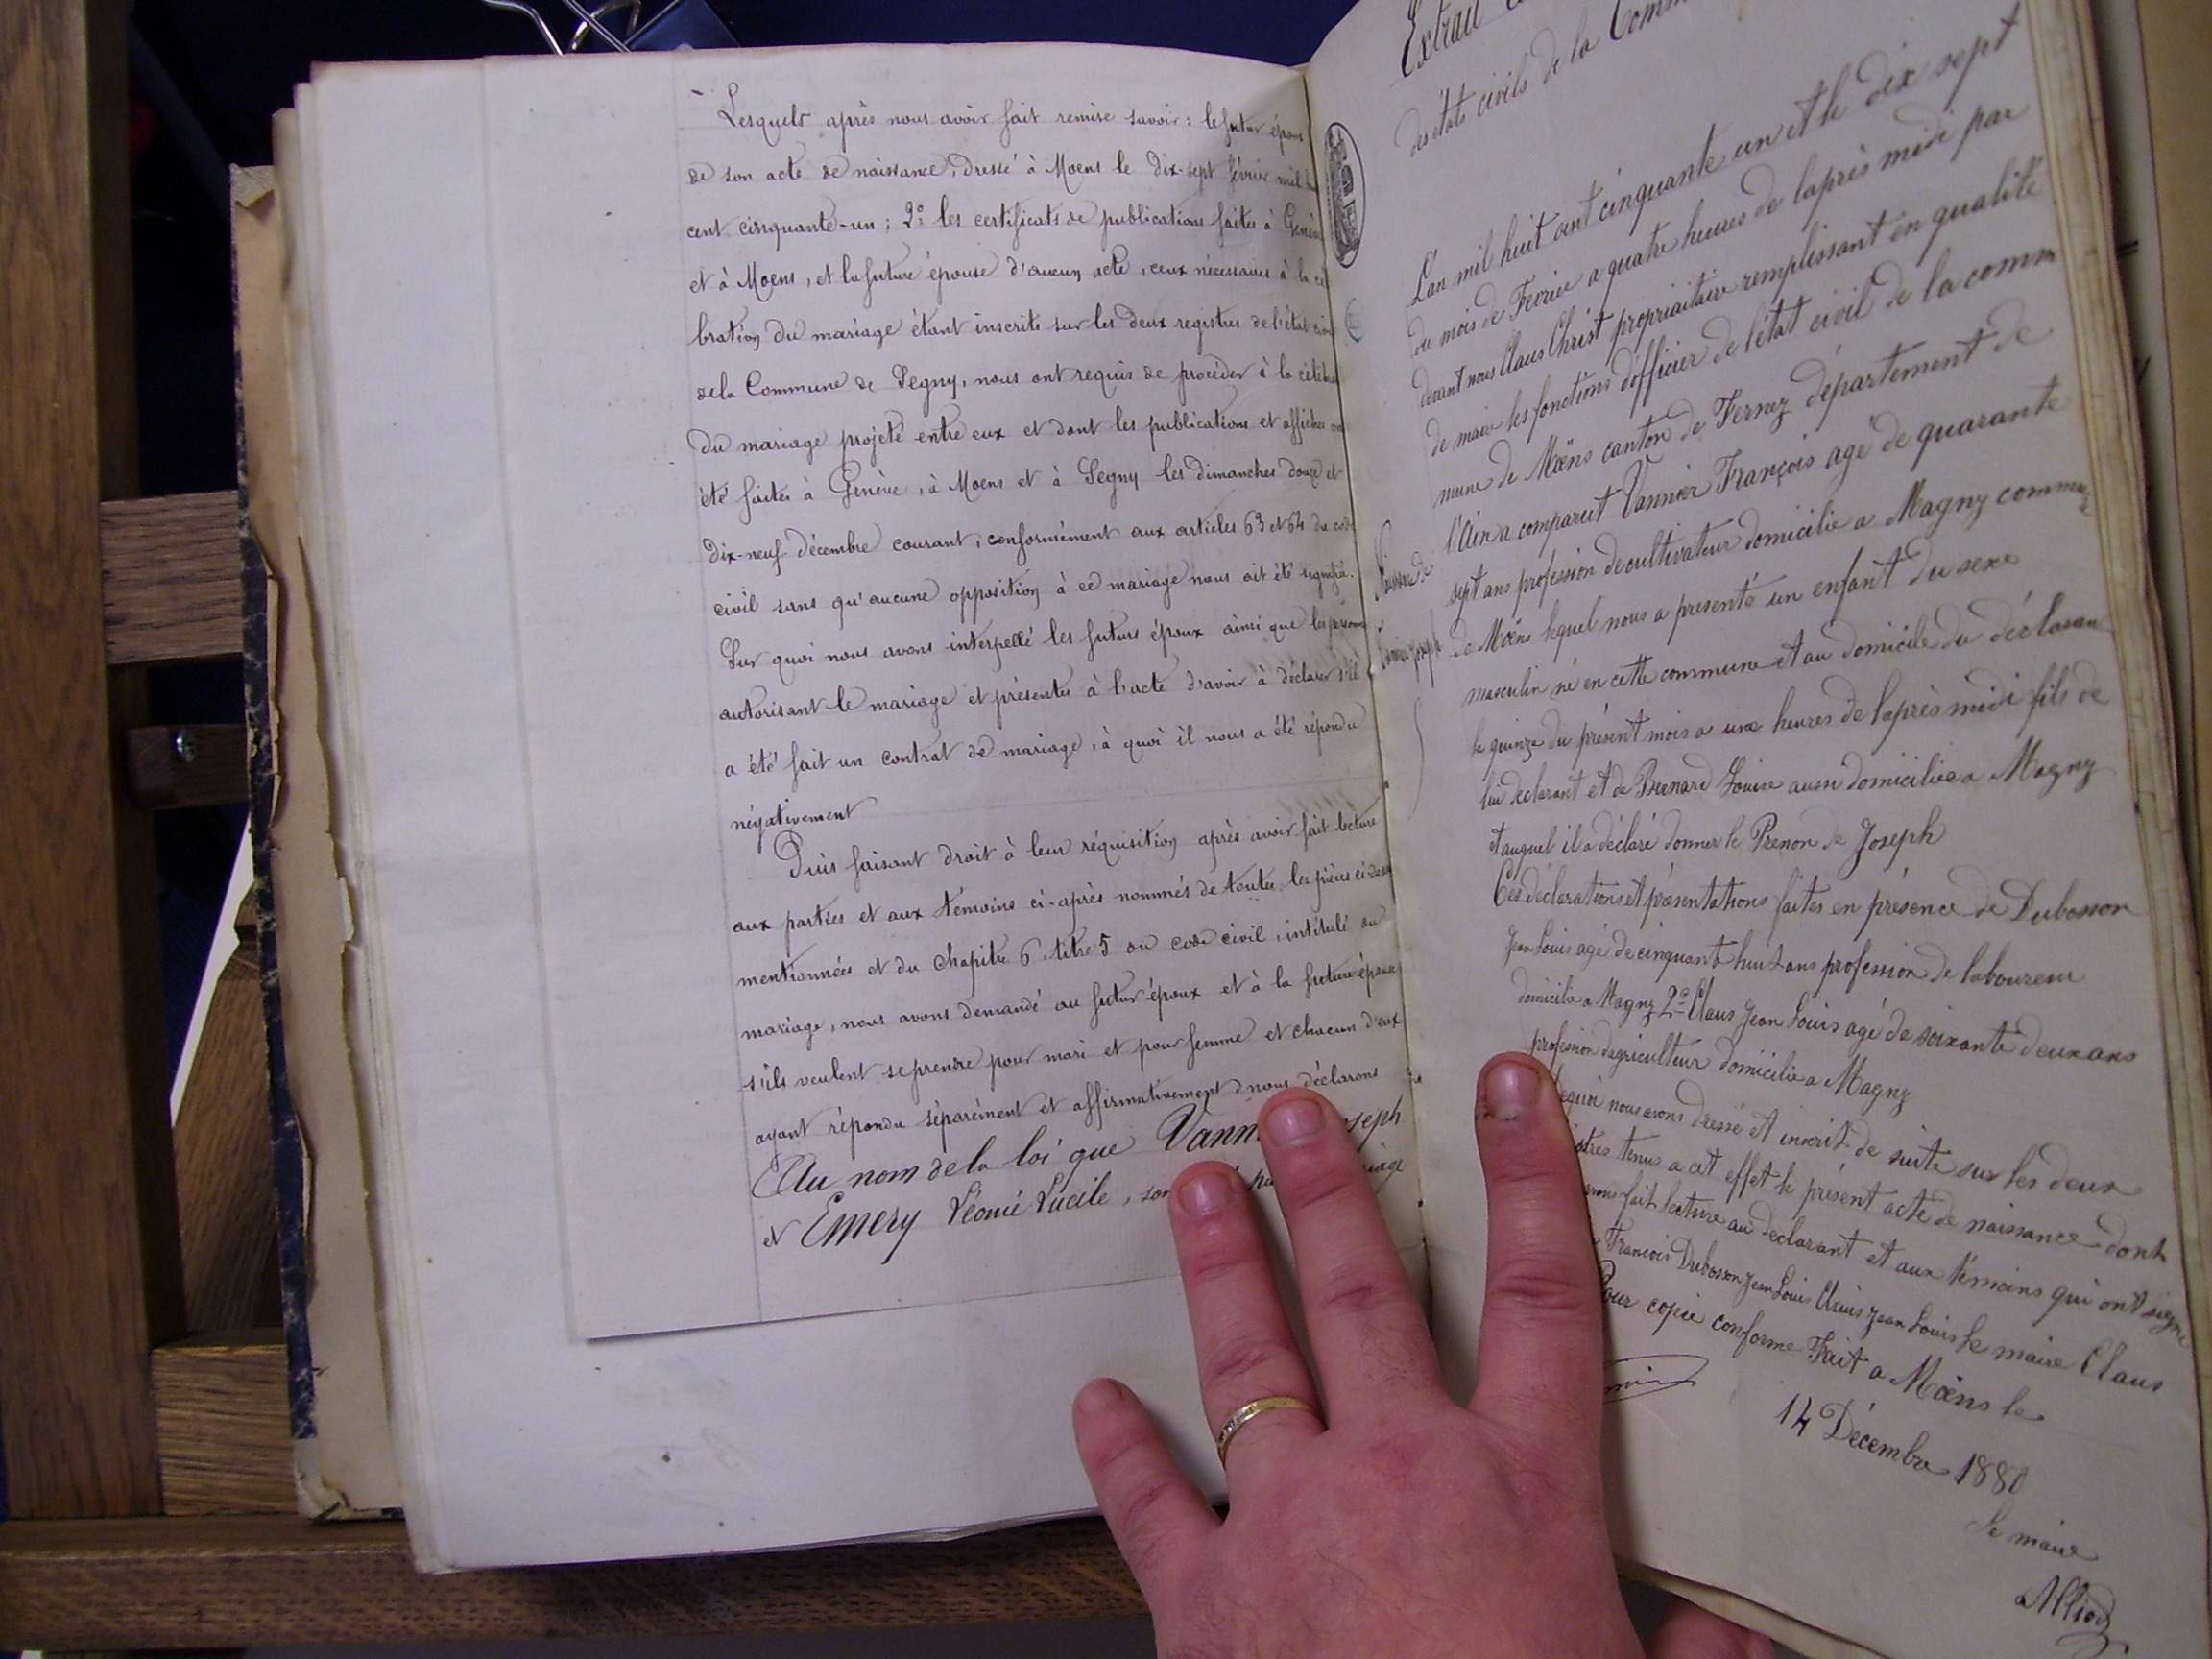 Lesquels après nous avoir fait remise savoir : le futur époux
de son acte de naissance, dressé à Moens le dix-sept février mil
cent cinquante-un ; 2° les certificats de publications faites à Genève
et à Moens, et la future épouse d'aucun acte, ceux nécessaires à la
bration du mariage étant inscrits sur les deux registres de l'état
de la Commune de Segny, nous ont requis de procéder à la
du mariage projeté entre eux et dont les publications et affiches
été faites à Genève, à Moens et à Segny les dimanches douze et
dix-neuf décembre courant, conformément aux articles 63 et 64 du code
civil sans qu'aucune opposition à ce mariage nous ait été signifiée.
Sur quoi nous avons interpellé les futurs époux ainsi que les
autorisant le mariage et présentes à l'acte d'avoir à déclarer s'il
a été fait un contrat de mariage, à quoi il nous a été répondu
négativement
Puis faisant droit à leur réquisition après avoir fait lecture
aux parties et aux témoins ci-après nommés de toutes les pièces
mentionnées et du chapitre 6 titre 5 du code civil, intitulé du
mariage, nous avons demandé au futur époux et à la future épouse
s'ils veulent se prendre pour mari et pour femme et chacun d'eux
ayant répondu séparément et affirmativement nous déclarons
Au nom de la loi que Vann seph
et Emery Léonie Lucile, son
Extrait
des états civils de la Comm
L'an mil huit cent cinquante un et le dix sept
du mois de Fevrier a quatre heures de laprès midi par
devant nous Claus Christ propriaitaire remplissant en qualité
de maire les fonctions d'officier de l'état civil de la comm
mune de Möens canton de Fernez département de
l'Ain a comparut Vannier François agé de quarante
sept ans profession de cultivateur domicilié a Magny commune
de Möens lequel nous a presenté un enfant du sexe
masculin né en cette commune et au domicile du déclarant
le quinze du présent mois a une heures de laprès midi fils de
lui déclarant et de Bernard Louise aussi domiciliée a Magny
et auquel il a déclaré donner le Prenon de Joseph
Ces déclarations et présentations faites en présence de Dubosson
Jean Louis agé de cinquante huit ans profession de laboureur
domicilié a Magny 2° Claus Jean Louis agé de soixante deux ans
profession dagriculteur domicilié a Magny
nous avons dressé et inscrit de suite sur les deux
tenus a cet effet le présent acte de naissance dont
fait lecture au déclarant et aux témoins qui ont signé
François Dubosson Jean Louis Claus Jean Louis le maire Claus
Pour copie conforme Fait a Möens le
14 Décembre 1880
le maire
Alliod